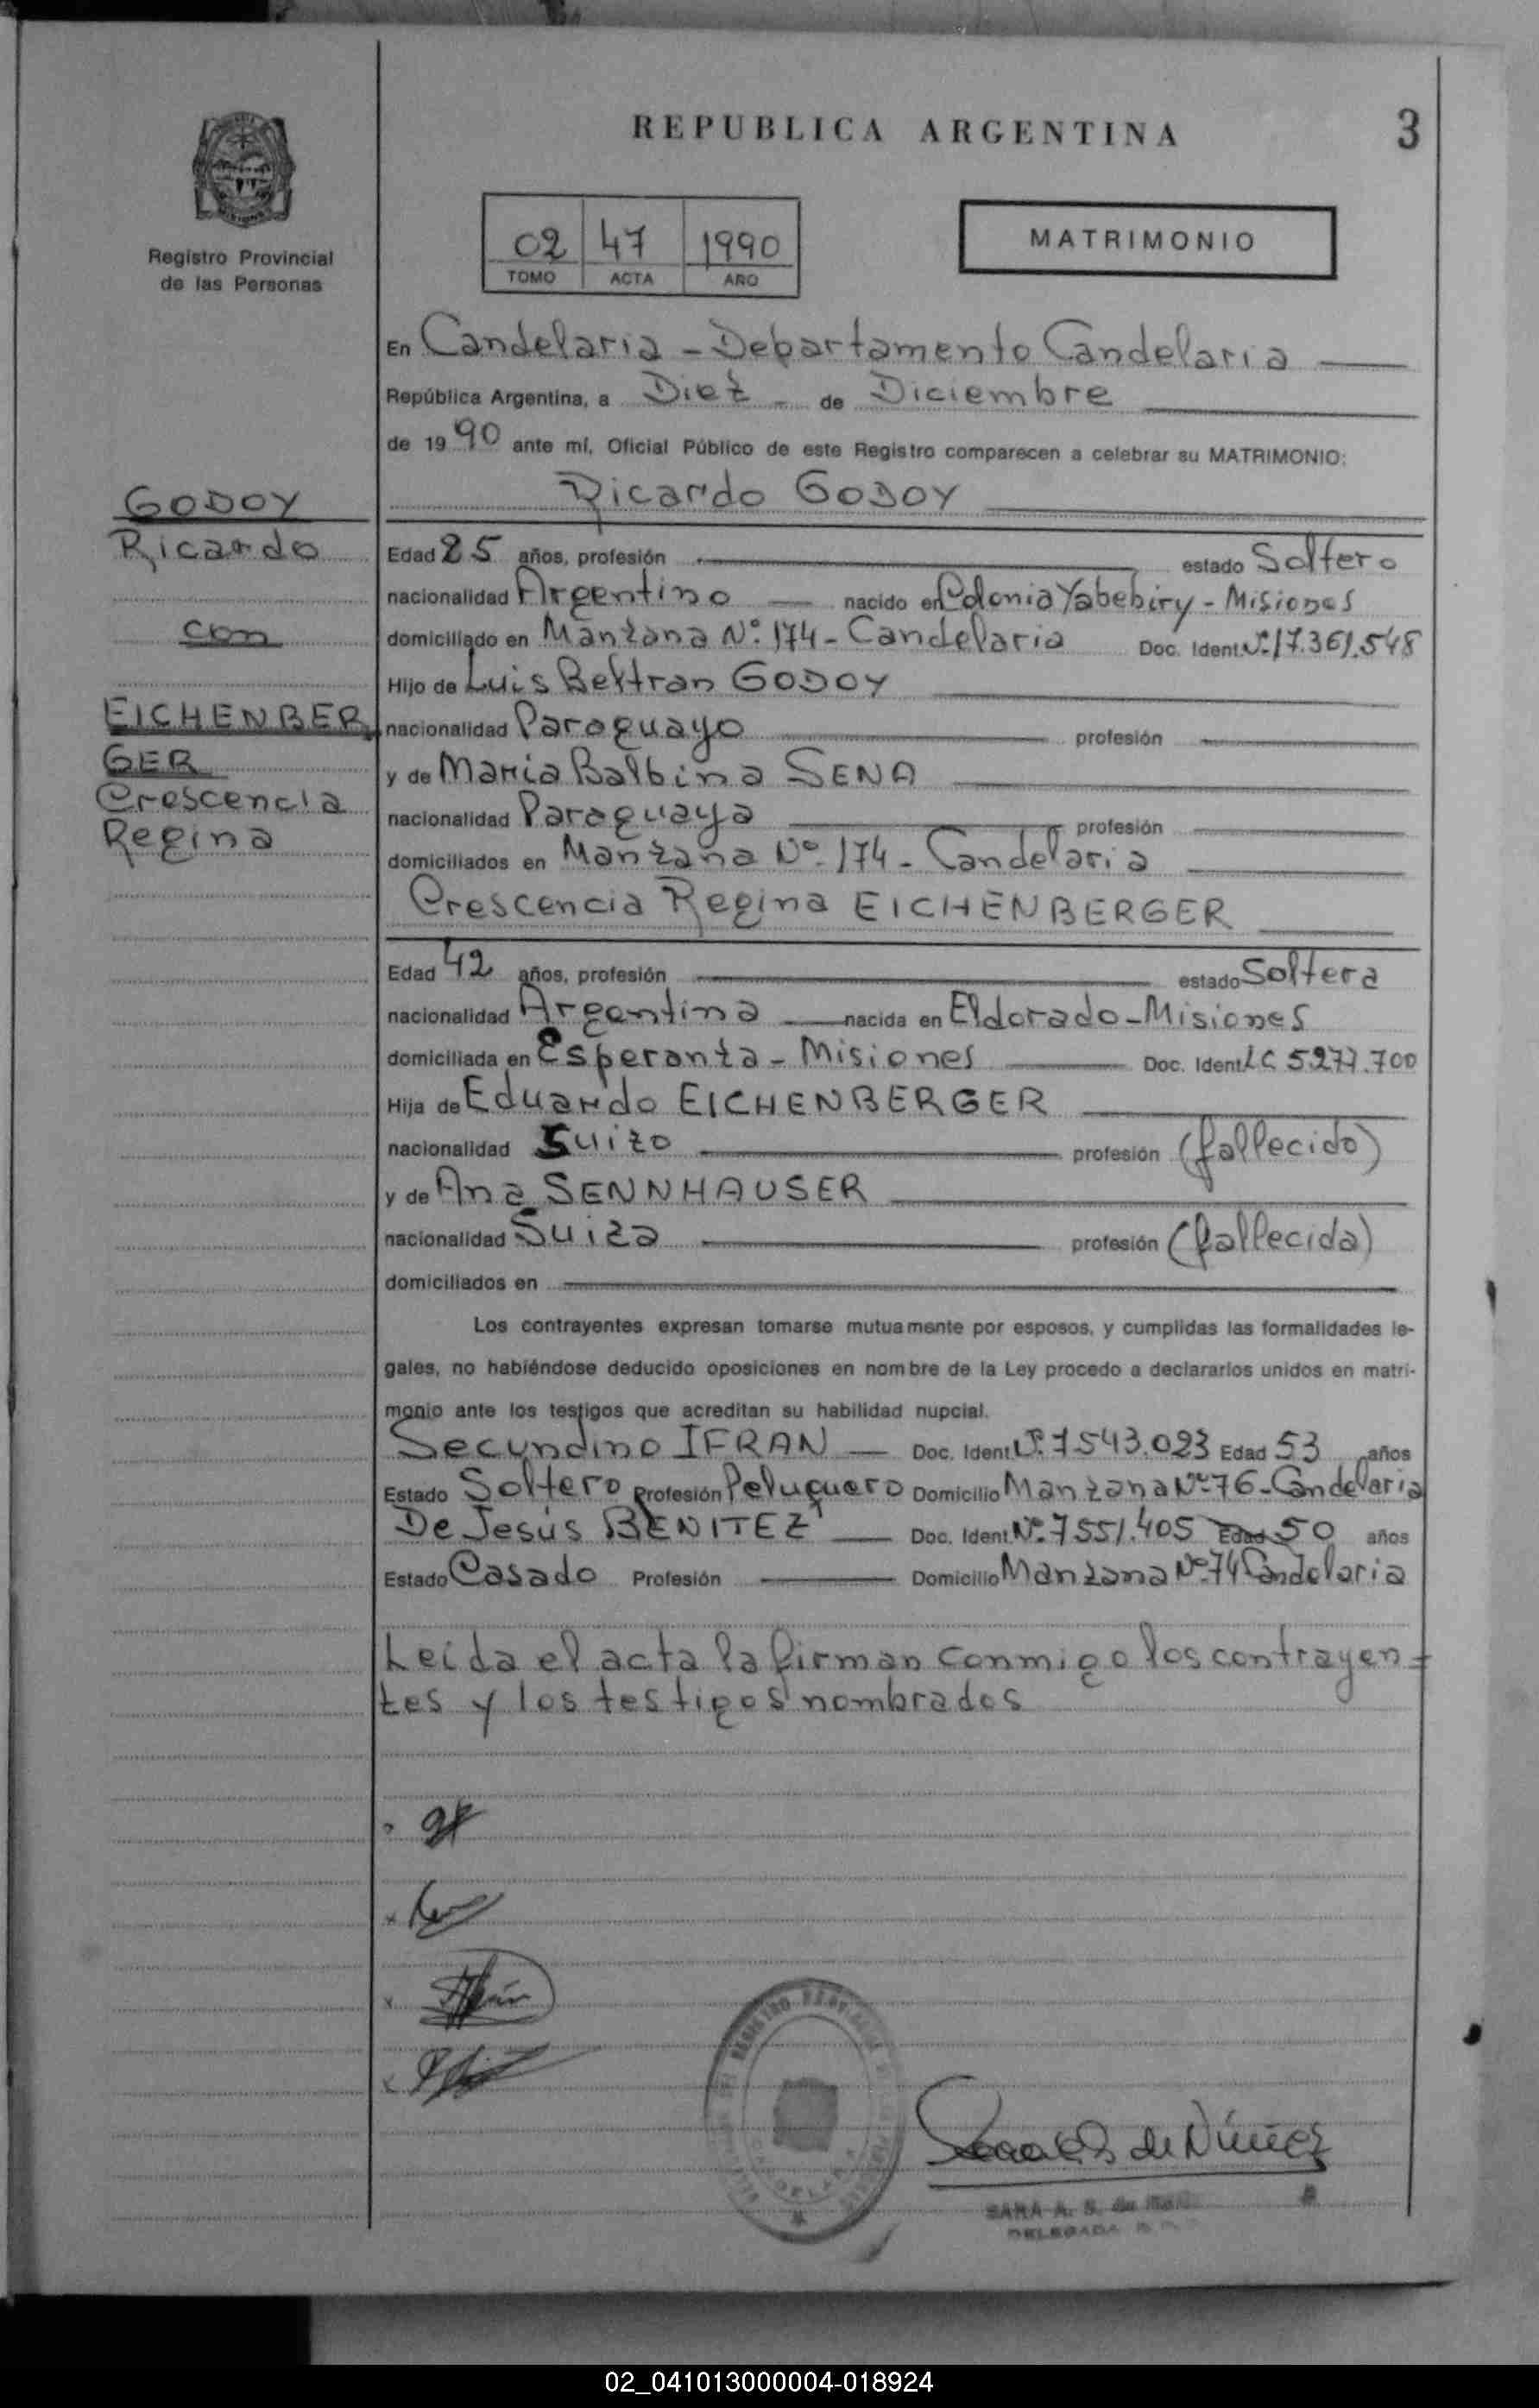 REPUBLICA ARGENTINA
3
Registro Provincial
de las Personas
02 47 1990
TOMO ACTA AÑO
MATRIMONIO
En Candelaria - Departamento Candelaria
República Argentina, a Diez - de Diciembre
de 1990 ante mí, Oficial Público de este Registro comparecen a celebrar su MATRIMONIO:
Ricardo GODOY
GODOY
Ricardo
con
EICHENBER
GER
Crescencia
Regina
Edad 25 años, profesión estado Soltero
nacionalidad Argentino nacido en Colonia Yabebiry - Misiones
domiciliado en Manzana Nº 174 - Candelaria Doc. Ident. Nº 17.361.548
Hijo de Luis Beltran GODOY
nacionalidad Paraguayo profesión
y de Maria Balbina SENA
nacionalidad Paraguaya profesión
domiciliados en Manzana Nº 174 - Candelaria
Crescencia Regina EICHENBERGER
Edad 42 años, profesión estado Soltera
nacionalidad Argentina nacida en Eldorado - Misiones
domiciliada en Esperanza - Misiones Doc. Ident. LC 5.277.700
Hija de Eduardo EICHENBERGER
nacionalidad Suizo profesión (fallecido)
y de Ana SENNHAUSER
nacionalidad Suiza profesión (fallecida)
domiciliados en
Los contrayentes expresan tomarse mutuamente por esposos, y cumplidas las formalidades le-
gales, no habiéndose deducido oposiciones en nombre de la Ley procedo a declararlos unidos en matri-
monio ante los testigos que acreditan su habilidad nupcial.
Secundino IFRAN Doc. Ident. Nº 7543.023 Edad 53 años
Estado Soltero Profesión Peluquero Domicilio Manzana Nº 76 - Candelaria
De Jesús BENITEZ Doc. Ident. Nº 7551.405 Edad 50 años
Estado Casado Profesión Domicilio Manzana Nº 74 Candelaria
Leída el acta la firman conmigo los contrayen-
tes y los testigos nombrados
de Núñez
SARA A. S. de
DELEGADA
02_041013000004-018924